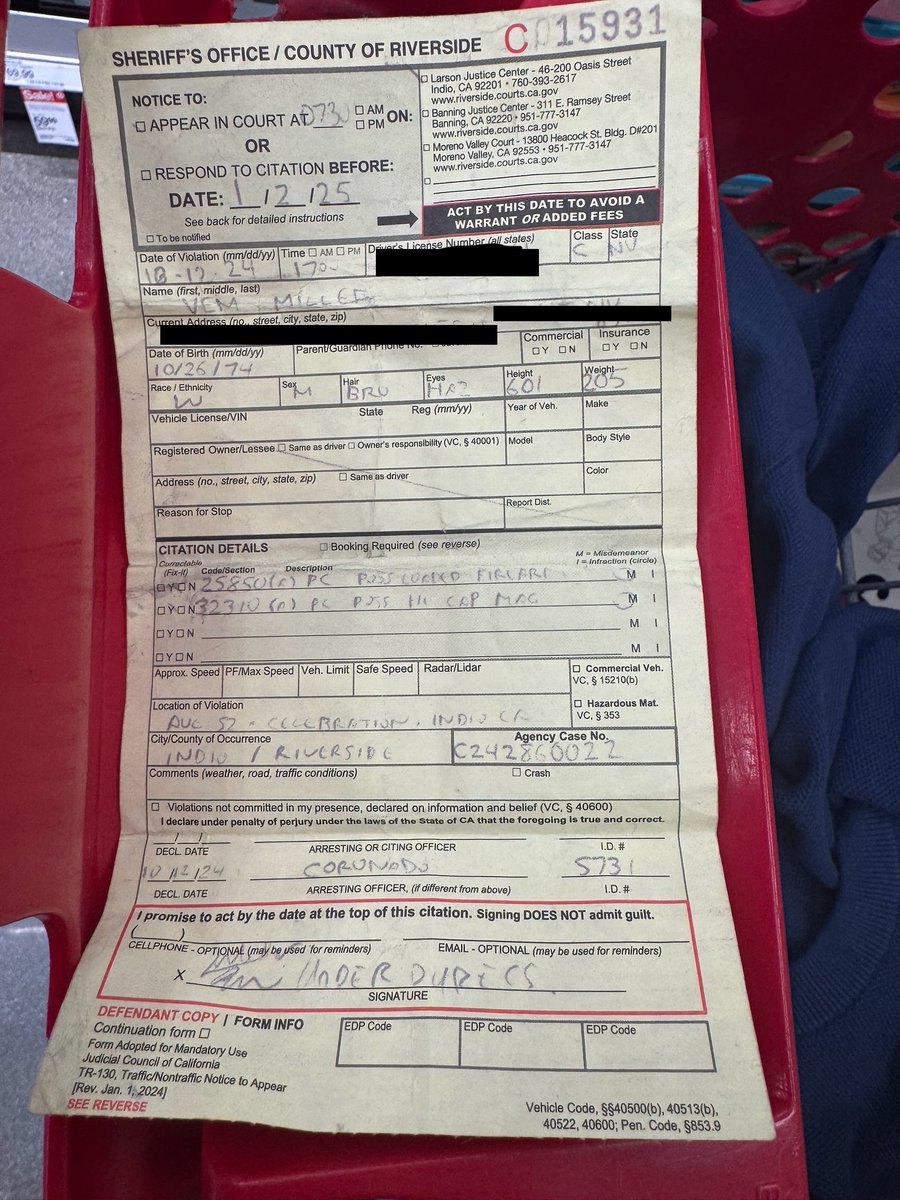 SHERIFF'S OFFICE / COUNTY OF RIVERSIDE C 015931
NOTICE TO:
☐ APPEAR IN COURT AT 0730 ☐ AM ☐ PM ON:
OR
☐ RESPOND TO CITATION BEFORE:
DATE: 1 / 2 / 25
See back for detailed instructions
☐ To be notified
☐ Larson Justice Center - 46-200 Oasis Street
Indio, CA 92201 • 760-393-2617
www.riverside.courts.ca.gov
☐ Banning Justice Center - 311 E. Ramsey Street
Banning, CA 92220 • 951-777-3147
www.riverside.courts.ca.gov
☐ Moreno Valley Court - 13800 Heacock St. Bldg. D#201
Moreno Valley, CA 92553 • 951-777-3147
www.riverside.courts.ca.gov
☐
ACT BY THIS DATE TO AVOID A
WARRANT OR ADDED FEES
Date of Violation (mm/dd/yy) Time ☐ AM ☐ PM Driver's License Number (all states) Class State
12 24 170 C NV
Name (first, middle, last)
VEM MILLER
Current Address (no., street, city, state, zip)
Date of Birth (mm/dd/yy) Parent/Guardian Phone No. Commercial Insurance
10/26/74 ☐ Y ☐ N ☐ Y ☐ N
Race / Ethnicity Sex Hair Eyes Height Weight
W M BRU HAZ 601 205
Vehicle License/VIN State Reg (mm/yy) Year of Veh. Make
Registered Owner/Lessee ☐ Same as driver ☐ Owner's responsibility (VC, § 40001) Model Body Style
Address (no., street, city, state, zip) ☐ Same as driver Color
Reason for Stop Report Dist.
CITATION DETAILS ☐ Booking Required (see reverse) M = Misdemeanor
I = Infraction (circle)
Correctable
(Fix-It) Code/Section Description
☐ Y ☐ N 25850(A) PC POSS LOADED FIREARM M I
☐ Y ☐ N 32310(A) PC POSS HI CAP MAG M I
☐ Y ☐ N M I
☐ Y ☐ N M I
Approx. Speed PF/Max Speed Veh. Limit Safe Speed Radar/Lidar ☐ Commercial Veh.
VC, § 15210(b)
☐ Hazardous Mat.
VC, § 353
Location of Violation
AVE 52 - CELEBRATION, INDIO CA
City/County of Occurrence Agency Case No.
INDIO / RIVERSIDE C242860022
Comments (weather, road, traffic conditions) ☐ Crash
☐ Violations not committed in my presence, declared on information and belief (VC, § 40600)
I declare under penalty of perjury under the laws of the State of CA that the foregoing is true and correct.
/ /
DECL. DATE ARRESTING OR CITING OFFICER I.D. #
10/12/24 CORONADO 5731
DECL. DATE ARRESTING OFFICER, (if different from above) I.D. #
I promise to act by the date at the top of this citation. Signing DOES NOT admit guilt.
( )
CELLPHONE - OPTIONAL (may be used for reminders) EMAIL - OPTIONAL (may be used for reminders)
X UNDER DURECS
SIGNATURE
DEFENDANT COPY | FORM INFO
Continuation form ☐
Form Adopted for Mandatory Use
Judicial Council of California
TR-130, Traffic/Nontraffic Notice to Appear
[Rev. Jan. 1, 2024]
SEE REVERSE
EDP Code EDP Code EDP Code
Vehicle Code, §§40500(b), 40513(b),
40522, 40600; Pen. Code, §853.9
Sale!